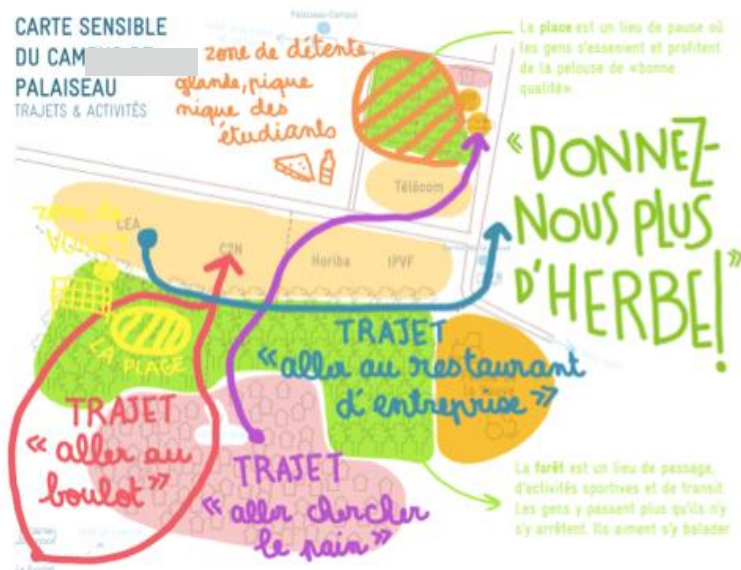 CARTE SENSIBLE
DU CAM
PALAISEAU
TRAJETS & ACTIVITÉS
Palaiseau-Campus
zone de détente
glande, pique
nique des
étudiants
La place est un lieu de pause où
les gens s'assement et profitent
de la pelouse de «bonne
qualité».
« DONNEZ-
NOUS PLUS
D'HERBE! »
Télécom
zone de
LEA
C2N
Horiba
IPVF
LA PLAGE
TRAJET
« aller au restaurant
d'entreprise »
TRAJET
« aller au
boulot »
TRAJET
« aller chercher
le pain »
La forêt est un lieu de passage,
d'activités sportives et de transit.
Les gens y passent plus qu'ils n'y
s'y arrêtent. Ils aiment s'y balader